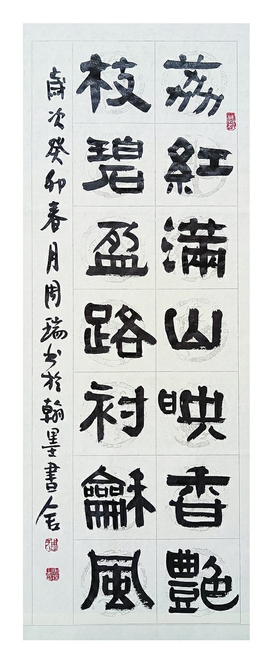 荔紅滿山映香艷
枝碧盈路襯龢風
歲次癸卯春月周瑞书於翰墨書舍